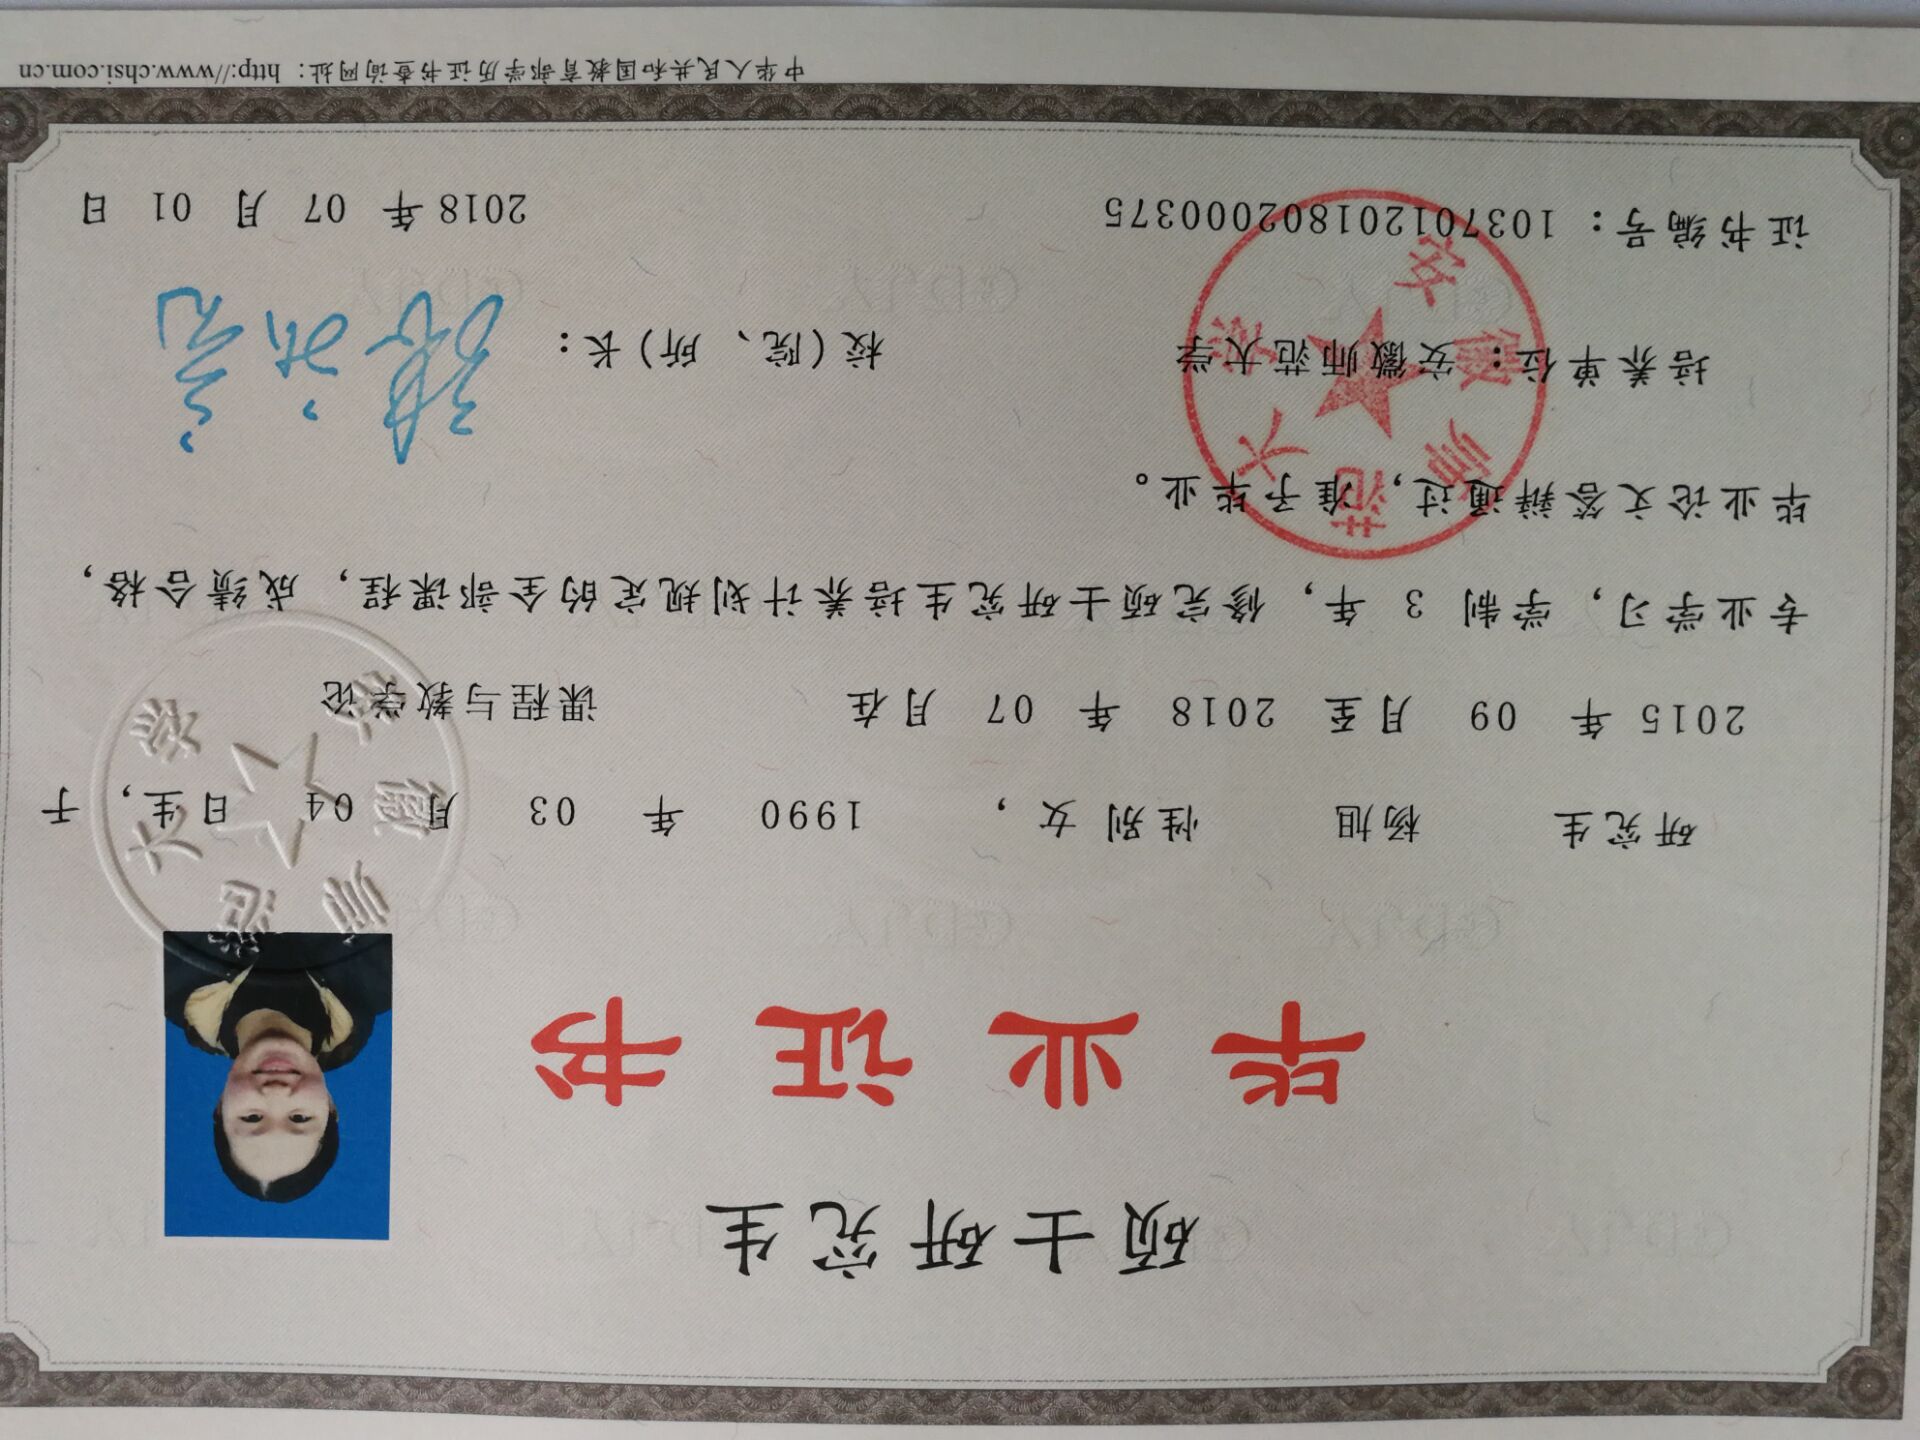 硕士研究生
毕业证书
研究生 杨旭 性别 女, 1990 年 03 月 04 日生, 于
2015 年 09 月至 2018 年 07 月在 课程与教学论
专业学习, 学制 3 年, 修完硕士研究生培养计划规定的全部课程, 成绩合格,
毕业论文答辩通过, 准予毕业。
培养单位: 安徽师范大学 校(院、所)长:
证书编号: 103701201802000375 2018 年 07 月 01 日
安徽师范大学
中华人民共和国教育部学历证书查询网址: http://www.chsi.com.cn